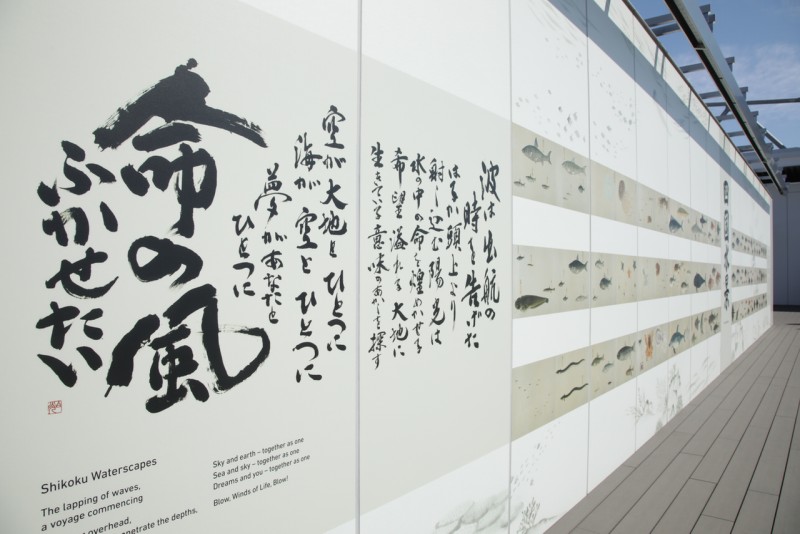 四国水景
波は出航の
時を告げた
はるか頭上より
射し込む陽光は
水の中の命を煌めかせる
希望溢れる大地に
生きている意味のあかしを探す
空が大地とひとつに
海が空とひとつに
夢があなたと
ひとつに
命の風
ふかせたい
Shikoku Waterscapes
The lapping of waves,
a voyage commencing
overhead,
the depths.
Sky and earth – together as one
Sea and sky – together as one
Dreams and you – together as one
Blow, Winds of Life, Blow!